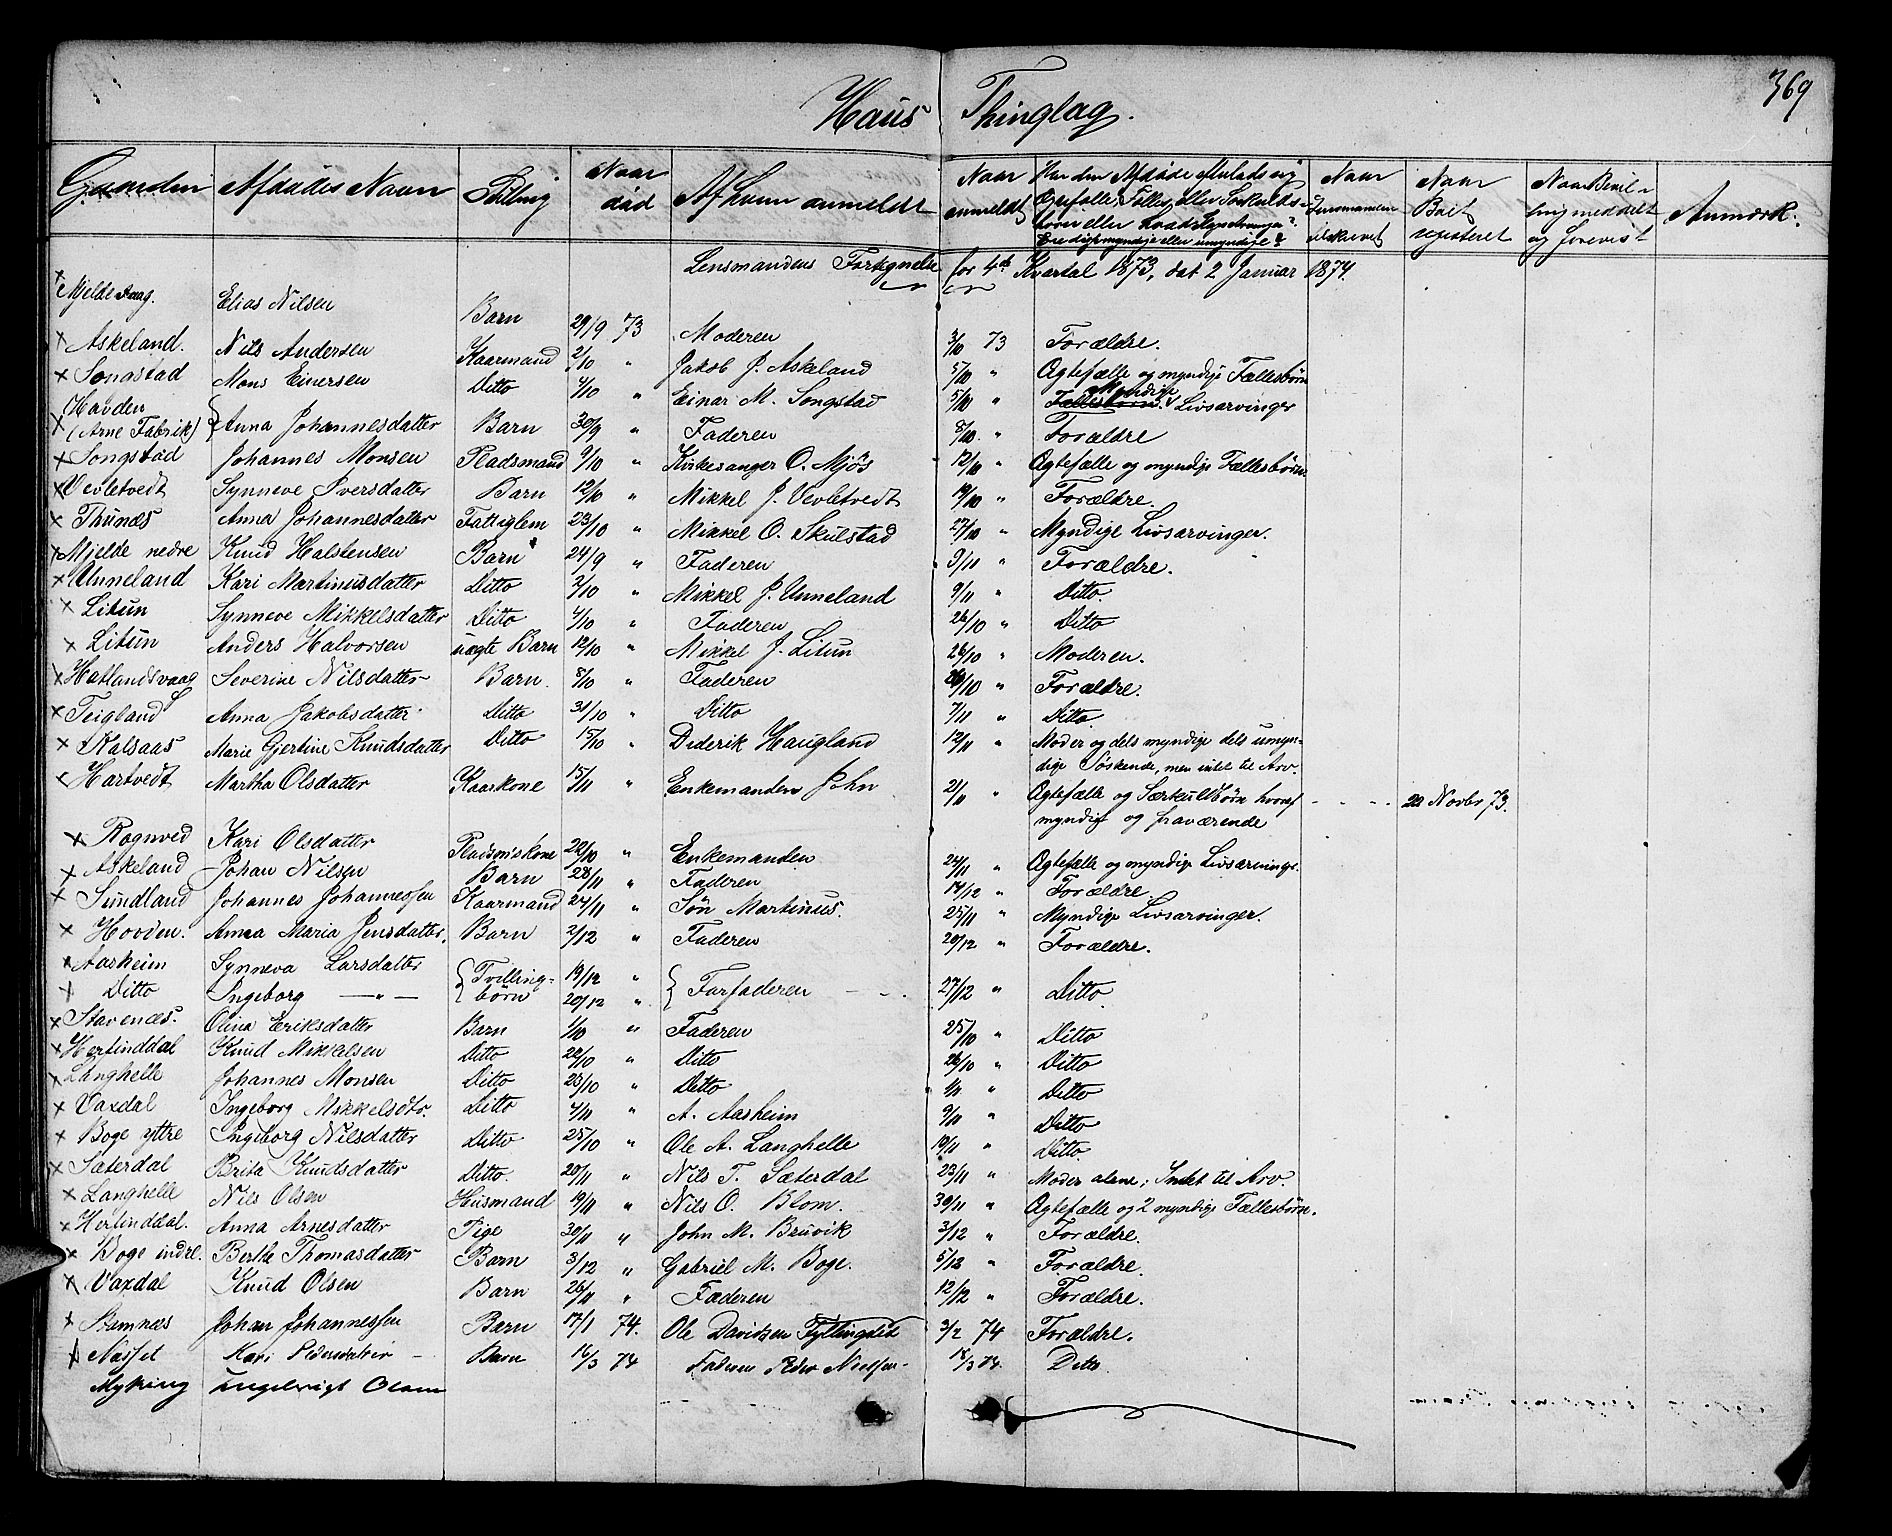 369
Haus Thinglag.
Gaarden Afdødes Navn Stilling Naar død Af hvem anmeldt Naar anmeldt Har den Afdøde efterladt sig
Ægtefælle, Fælles eller Særkulds-
børn eller
Ere disse myndige eller umyndige? Naar Naar Boet registeret Naar Bevil-
ling meddelt
og forevist Anmærk.
Lensmandens Fortegnelse for 4de Kvartal 1873, dat 2 Januar 1874.
x Mjelde Vaag. Elias Nilsen Barn 29/9 73 Moderen 3/10 73 Forældre.
x Askeland. Nils Andersen Kaarmand 2/10 " Jakob J. Askeland 5/10 " Ægtefælle og myndige Fællesbørn
x Songstad Mons Einersen Ditto 4/10 " Einar M. Songstad 5/10 " Fællesbørn. Myndige Livsarvinger
x Havden
(Arne Fabrik) { Anna Johannesdatter Barn 30/9 " Faderen 8/10 " Forældre
x Songstad Johannes Monsen Pladsmand 9/10 " Kirkesanger O. Mjøs 12/10 " Ægtefælle og myndige Fællesbørn
x Vevletvedt Synneve Iversdatter Barn 12/10 " Mikkel J. Vevletvedt 19/10 " Forældre.
x Thunæs Anna Johannesdatter Fattiglem 23/10 " Mikkel O. Skulstad 27/10 " Myndige Livsarvinger.
x Mjelde nedre Knud Halstensen Barn 24/9 " Faderen 3/11 " Forældre.
x Unneland Kari Martinusdatter Ditto 2/10 " Mikkel J. Unneland 9/11 " Ditto.
x Litun Synneve Mikkelsdatter Ditto 4/10 " Faderen 26/10 " Ditto
x Litun Anders Halvorsen uægte Barn 12/10 " Mikkel J. Litun 26/10 " Moderen.
x Hatlandsvaag Severine Nilsdatter Barn. 8/10 " Faderen 26/10 " Forældre.
x Teigland Anna Jakobsdatter Ditto 31/10 " Ditto 7/11 " Ditto.
x Kalsaas Marie Gjertine Knudsdatter Ditto 15/10 " Diderik Haugland 12/11 " Moder og dels myndige dels umyn-
dige Søskende, men intet til Arv.
x Hartvedt Martha Olsdatter Kaarkone 15/11 " Enkemanden John 21/11 " Ægtefælle og Særkuldbørn hvoraf
myndige og fraværende - - - - 22 Novbr 73.
x Rognved Kari Olsdatter Pladsmskone 22/10 " Enkemanden 24/11 " Ægtefælle og myndige Livsarvinge.
x Askeland Johan Nilsen Barn 28/11 " Faderen 14/12 " Forældre.
x Sundland Johannes Johannessen Kaarmand 24/11 " Søn Martinus. 25/11 " Myndige Livsarvinger.
x Hovden. Anna Maria Jensdatter. Barn 2/12 " Faderen 20/12 " Forældre.
x Aasheim Synneva Larsdatter { Tvilling- 19/12 " } Farfaderen 27/12 " Ditto
x Ditto Ingeborg — " — børn 20/12 "
x Stavenæs. Olina Eriksdatter Barn 1/10 " Faderen 25/10 " Ditto
x Herlinddal Knud Mikkelsen Ditto 22/10 " Ditto 26/10 " Ditto
x Langhelle Johannes Monsen Ditto 23/10 " Ditto 1/11 " Ditto
x Vaxdal Ingeborg Mikkelsdtr. Ditto 4/11 " A. Aasheim 9/11 " Ditto
x Boge yttre Ingeborg Nilsdatter Ditto 25/10 " Ole A. Langhelle 19/11 " Ditto
x Sæterdal Brita Knudsdatter Ditto. 20/11 " Nils T. Sæterdal 23/11 " Moder alene; Intet til Arv.
x Langhelle Nils Olsen Husmand 19/11 " Nils O. Blom. 30/11 " Ægtefælle og 2 myndige Fællesbørn.
x Herlinddal. Anna Arnesdatter Pige 30/11 " John M. Bruvik 3/12 " Forældre.
x Boge indre. Berthe Thomasdatter Barn 3/12 " Gabriel M. Boge. 5/12 " Forældre.
x Vaxdal Knud Olsen Barn 26/11 " Faderen 12/12 " Forældre.
x Stamnæs Johan Johannessen Barn 17/1 74. Ole Davidsen Fyllingslid 3/2 74 Forældre.
x Nasset Kari Pedersdatter - Barn 16/3 74 Faderen Peder Nielsen - 18/3 74. Ditto
Myking Engelbrigt Olsen